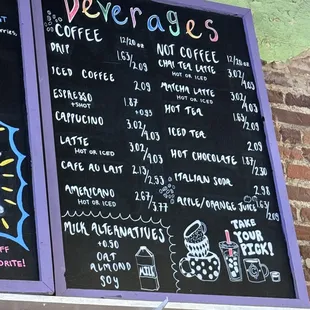 Beverages
COFFEE 12/20oz
DRIP 1.63/2.09
ICED COFFEE 2.09
ESPRESSO 1.87
+SHOT +0.93
CAPPUCINO 3.02/4.03
LATTE 3.02/4.03
HOT OR ICED
CAFE AU LAIT 2.13/2.93
AMERICANO 2.67/3.77
HOT OR ICED
MILK ALTERNATIVES
+0.50
OAT
ALMOND
SOY
MILK
NOT COFFEE 12/20oz
CHAI TEA LATTE 3.02/4.03
HOT OR ICED
MATCHA LATTE 3.02/4.03
HOT OR ICED
HOT TEA 1.63/2.09
ICED TEA 2.09
HOT CHOCOLATE 1.87/2.30
ITALIAN SODA 2.98
APPLE/ORANGE JUICE 1.63/2.09
TAKE
YOUR
PICK!
OFF
FAVORITE!